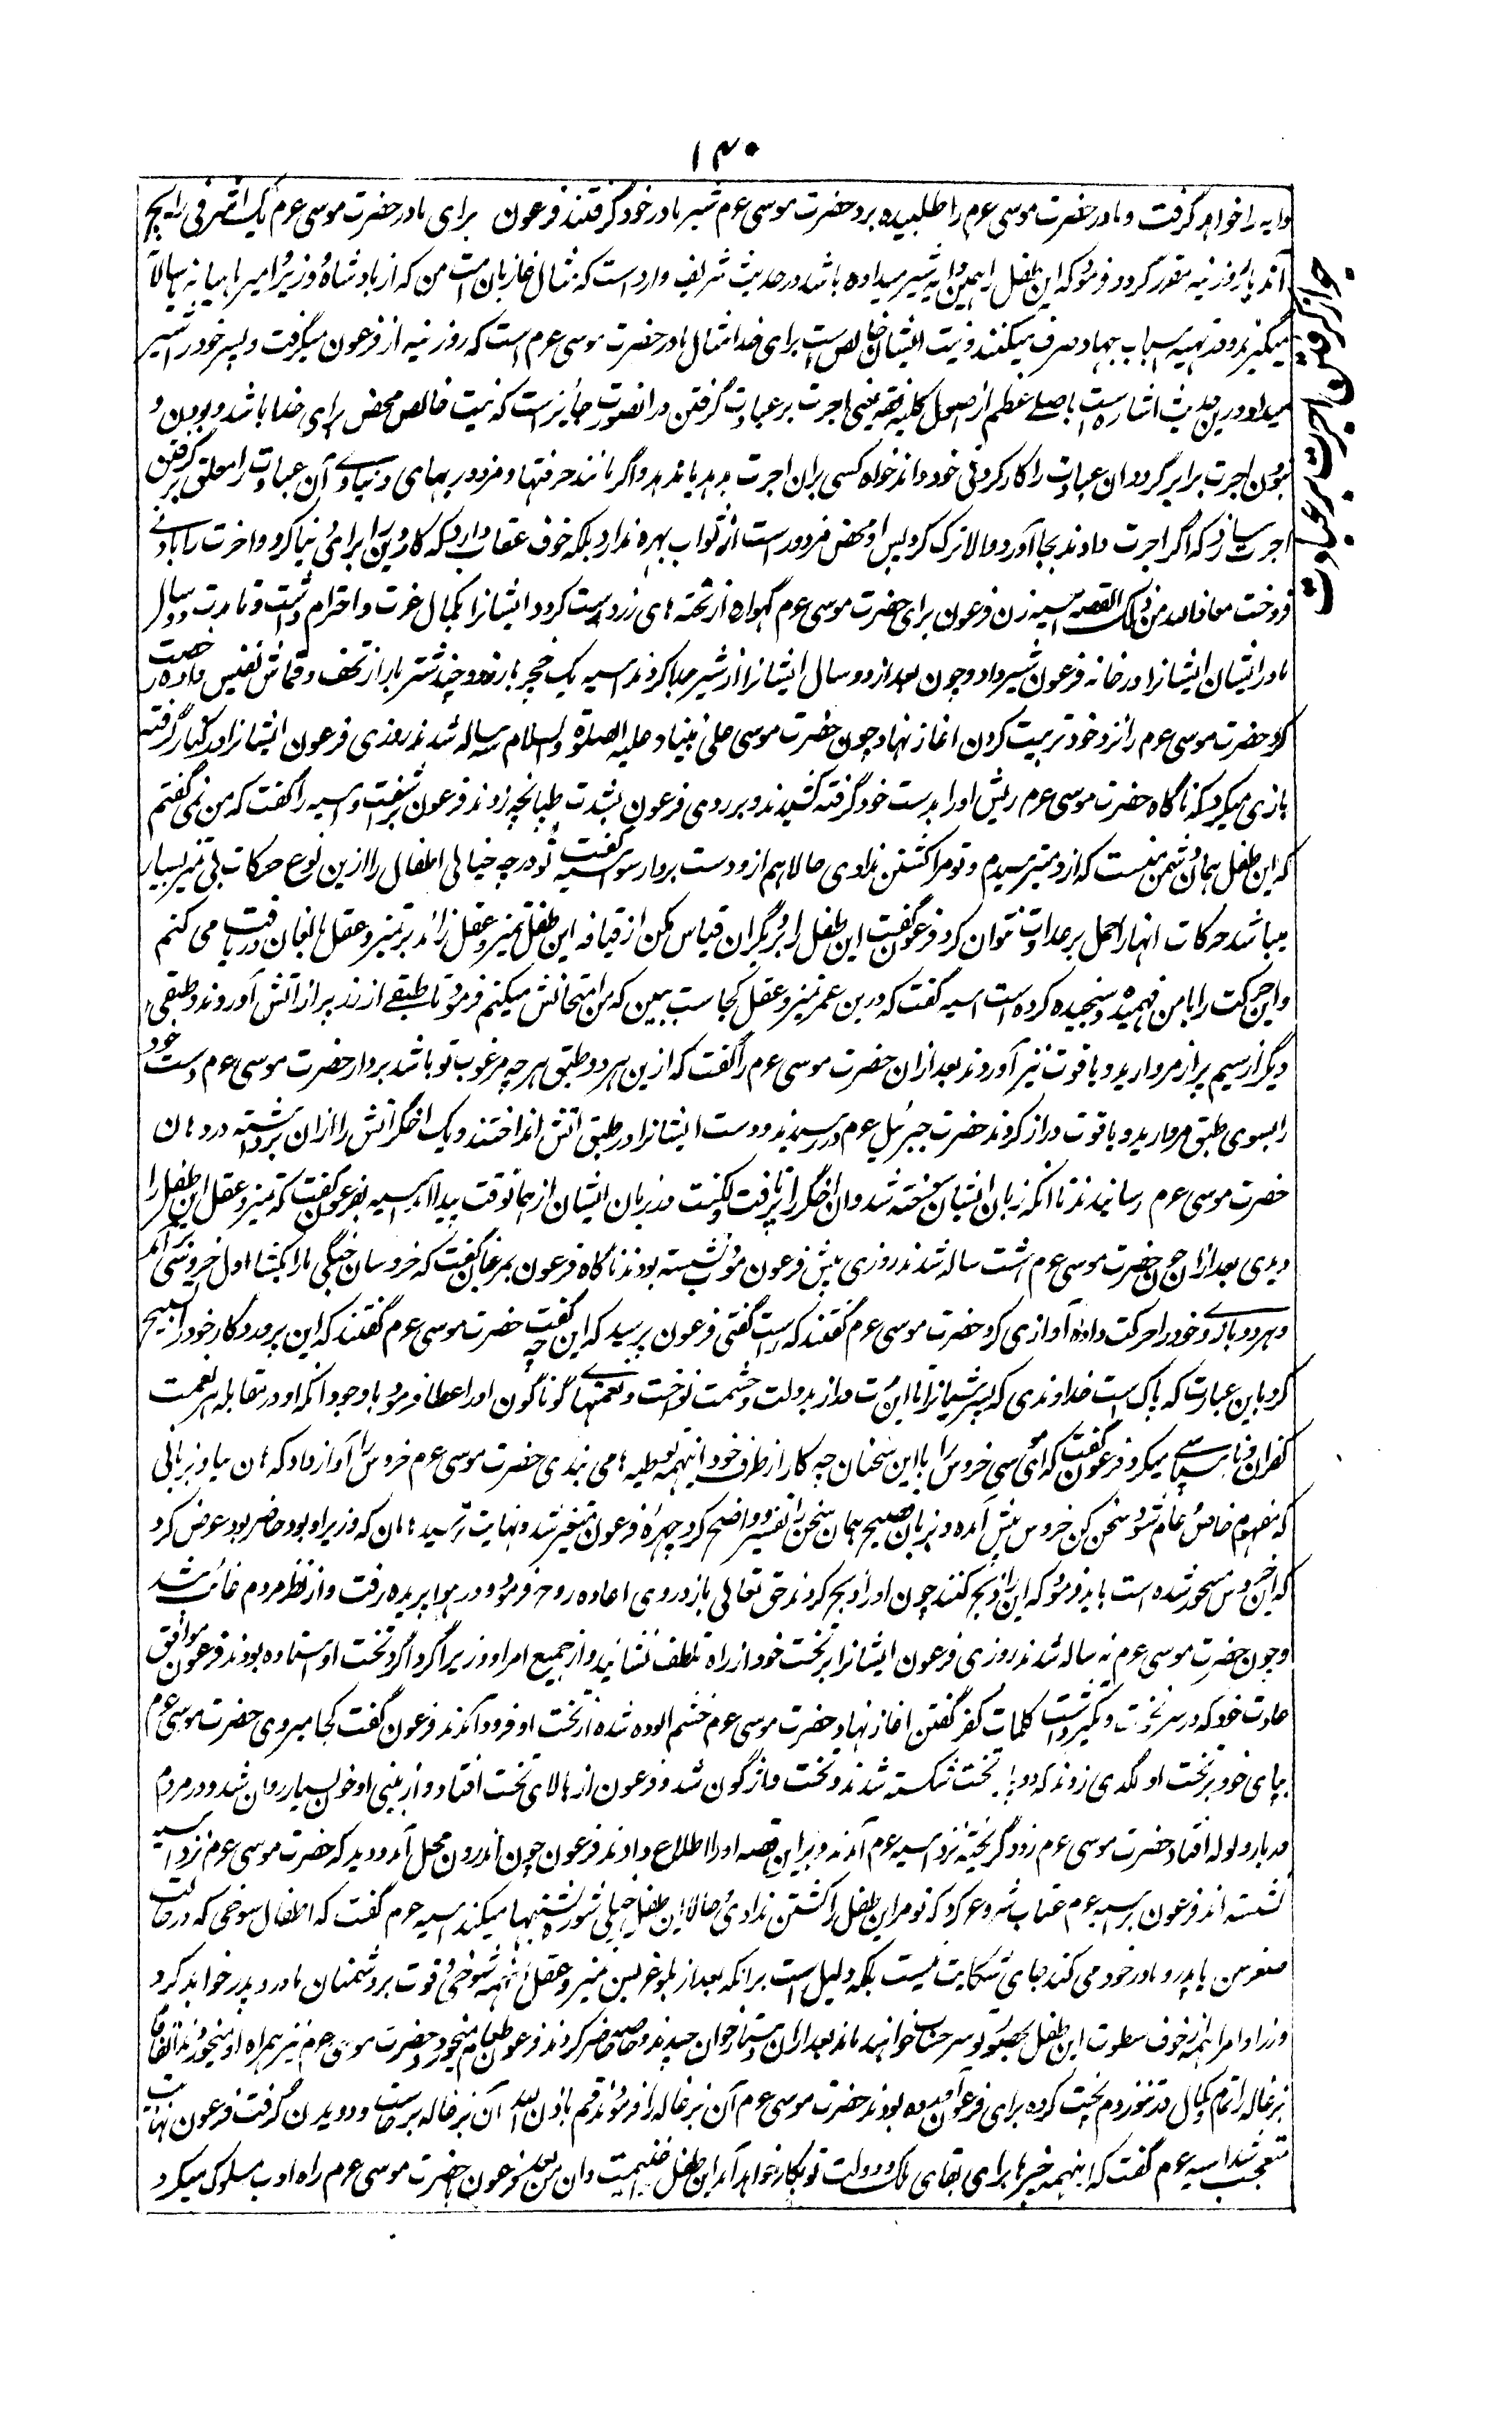 ۱۳۰
دایه را خواهد گرفت و مادر حضرت موسی عوم را طلبیده برد حضرت موسی عوم شیر مادر خود گرفتند فرعون برای مادر حضرت موسی عوم یک اشرفی رایج
آنوقت روزینه مقرر کرد و فرمود که این طفل را همین دایه شیر میداده باشد در حدیث شریف وارد است که مثال غازیان امت من که از بادشاه و وزیر و امیر ماهیانه و سالانه
میگیرند و در تهیه اسباب جهاد صرف میکنند و نیت ایشان خالص است برای خدا مثال مادر حضرت موسی عوم است که روزینه از فرعون میگرفت و پسر خود را شیر
میداد و درین حدیث اشارت است باصلے عظیم از اصول کلیه فقه یعنی اجرت بر عبادت گرفتن در انصورت جائز است که نیت خالص محض برای خدا باشد و بودن و
نبودن اجرت برابر گردد و ان عبادت را کار کردنی خود داند خواه کسی بران اجرت بدهد یا ندهد و اگر مانند حرفتها و مزدوریهای دنیاوے آن عبادت را معلق بر گرفتن
اجرت سازد که اگر اجرت دادند بجا آورد و الا ترک کرد پس او محض مزدور است از ثواب بهره ندارد بلکه خوف عقاب دارد که کار دین را برای دنیا کرد و اخرت را بادنے
فروخت معاذ الله من ذلک القصه آسیه زن فرعون برای حضرت موسی عوم گهواره از تخته های زر درست کرد و ایشانرا بکمال عزت و احترام داشت و تا مدت دو سال
مادر ایشان ایشانرا در خانه فرعون شیر داد و چون بعد از دو سال ایشانرا از شیر جدا کردند اسیه یک خچر بار زر و چند شتر بار از تحف و قماش نفیس داده رخصت
کرد حضرت موسی عوم را نزد خود تربیت کردن اغاز نهاد چون حضرت موسی علی نبینا و علیه الصلوة والسلام سه ساله شدند روزی فرعون ایشانرا در کنار گرفته
بازی میکرد که ناگاه حضرت موسی عوم ریش او را بدست خود گرفته کشیدند و بر روی فرعون بشدت طپانچه زدند فرعون برآشفت و اسیه را گفت که من نمی گفتم
که این طفل همان دشمن منست که ازو میترسیدم و تو مرا کشتن ندادی حالا هم ازو دست بردار شو اسیه گفت تو در چه خیالی اطفال را ازین نوع حرکات بی تمیز بسیار
میباشد حرکات انها را حمل بر عداوت نتوان کرد فرعون گفت این طفل را بر دیگران قیاس مکن از قیافه این طفل تمیز و عقل زائد بر تمیز و عقل بالغان دریافت می کنم
و این حرکت را با من فهمیده و سنجیده کرده است اسیه گفت که درین عمر تمیز و عقل کجاست ببین که من امتحانش میکنم فرمود تا طبقے از زر پر از اتش آوردند و طبقی
دیگر از سیم پر از مروارید و یاقوت نیز آوردند بعد ازان حضرت موسی عوم را گفت که ازین هر دو طبق هر چه مرغوب تو باشد بردار حضرت موسی عوم دست خود
را بسوی طبق مروارید و یاقوت دراز کردند حضرت جبرئیل عوم در رسیدند و دست ایشانرا در طبق اتش انداختند و یک اخگر اتش را ازان برداشته در دهان
حضرت موسی عوم رسانیدند تا انکه زبان ایشان سوخته شد و ان اخگر را بر تافت و لکنت در زبان ایشان از همانوقت پیدا آمد اسیه بفرعون گفت که تمیز و عقل این طفل را
دیدی بعد ازان چون حضرت موسی عوم هشت ساله شدند روزی پیش فرعون مودب نشسته بودند ناگاه فرعون بمرغبان گفت که خروسان جنگی ما را بکشا اول خروسی برآمد
و هر دو بازوے خود را حرکت داده آوازی کرد حضرت موسی عوم گفتند که راست گفتی فرعون پرسید که این چه گفت حضرت موسی عوم گفتند که این پروردگار خود را تسبیح
کرد باین عبارت که پاک است خداوندی که پسر شبانرا تا این مدت دراز بدولت و حشمت نواخت و نعمتهاے گوناگون او را عطا فرمود با وجود آنکه او در مقابله هر نعمت
کفران و ناسپاسے میکرد فرعون گفت که ای موسی خروس را با این سخنان چه کار از طرف خود اینهمه توطیه ها می بندی حضرت موسی عوم خروس را آواز داد که هان بیا و بزبانی
که مفهوم خاص و عام شود سخن کن خروس پیش آمده و بزبان فصیح همان سخن را تفسیر و واضح کرد چهره فرعون متغیر شد و نهایت ترسید هامان که وزیر او بود حاضر بود عرض کرد
که این خروس مسحور شده است باید فرمود که این را ذبح کنند چون او را ذبح کردند حق تعالی باز در وی اعاده روح فرمود و در هوا پریده رفت و از نظر مردم غائب شد
و چون حضرت موسی عوم نه ساله شدند روزی فرعون ایشانرا بر تخت خود از راه تلطف نشانید و از جمیع امرا و وزیر اگرداگرد تخت او استاده بودند فرعون موافق
عادت خود که در سر نخوت و تکبر داشت کلمات کفر گفتن اغاز نهاد حضرت موسی عوم خشم الوده شده از تخت او فرود آمدند فرعون گفت کجا میروی حضرت موسی عوم
بپای خود بر تخت او لگدی زدند که دو پایه تخت شکسته شدند و تخت واژگون شد و فرعون از بالای تخت افتاد و از بینی او خون بسیار روان شد و در مردم
دربار ولوله افتاد حضرت موسی عوم زود گریخته نزد اسیه عوم آمدند و برین قصه او را اطلاع دادند فرعون چون اندرون محل آمد و دید که حضرت موسی عوم نزد اسیه
نشسته اند فرعون بر اسیه عوم عتاب شروع کرد که تو مرا این طفل را کشتن ندادی حالا این طفل خیلی شور پشتیها میکند اسیه عوم گفت که اطفال شوخی که در حالت
صغر سن با پدر و مادر خود می کنند جای شکایت نیست بلکه دلیل است برانکه بعد از بلوغ بسن تمیز و عقل اینهمه شوخی و قوت بر دشمنان مادر و پدر خواهد کرد
وزرا و امرا همه از خوف سطوت این طفل بحضور تو سر حساب خواهند ماند بعد ازان دسترخوان چیدند و خاصه حاضر کردند فرعون طعام میخورد و حضرت موسی عوم نیز همراه او میخوردند اتفاقا
بزغاله را تمام و کمال در تنور دم پخت کرده برای فرعون آورده بودند حضرت موسی عوم آن بزغاله را فرمودند قم باذن الله آن بزغاله برخاست و دویدن گرفت فرعون نهایت
متعجب شد اسیه عوم گفت که اینهمه چیزها برای بقای ملک و دولت تو بکار خواهد آمد این طفل غنیمت دان من بعد فرعون بحضرت موسی عوم راه ادب سلوک میکرد
جواز گرفتن اجرت بر عبادت